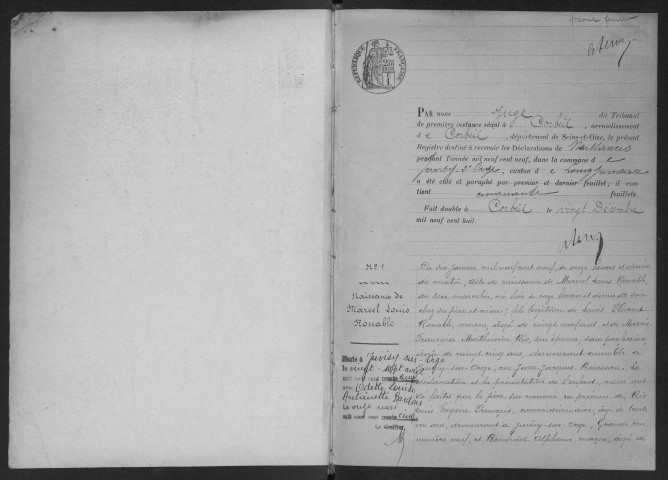 premier feuillet
RÉPUBLIQUE FRANÇAISE
PAR nous Juge du Tribunal
de première instance séant à Corbeil, arrondissement
d e Corbeil, département de Seine-et-Oise, le présent
Registre destiné à recevoir les Déclarations de Naissances
pendant l'année mil neuf cent neuf, dans la commune d e
Juvisy s/ Orge, canton d e Longjumeau
a été coté et paraphé par premier et dernier feuillet; il con-
tient cinquante feuillets.
Fait double à Corbeil le vingt Décembre
mil neuf cent huit.
N° 1
Naissance de
Marcel Louis
Rouable
Marié à Juvisy-sur-Orge
le vingt-sept avril
mil neuf cent trente
avec Odette Louise
Antoinette
Le onze mai
mil neuf cent trente
Le Greffier,
Du dix janvier mil neuf cent neuf, à onze heures et demie
du matin, acte de naissance de Marcel Louis Rouable,
du sexe masculin, né hier à onze heures et demie du soir
chez ses père et mère; fils légitime de Louis Florent
Rouable, maçon, âgé de vingt neuf ans, et de Marie
Françoise Mathurine Rio, son épouse, sans profession,
âgée de vingt cinq ans, demeurant ensemble à
Juvisy-sur-Orge, rue Jean-Jacques Rousseau. La
déclaration et la présentation de l'enfant nous ont
été faites par le père susnommé en présence de Rio
Louis Eugène François, commissionnaire, âgé de trente
en ans, demeurant à Juvisy-sur-Orge, Grande rue
numéro neuf, et Alphonse, maçon, âgé de